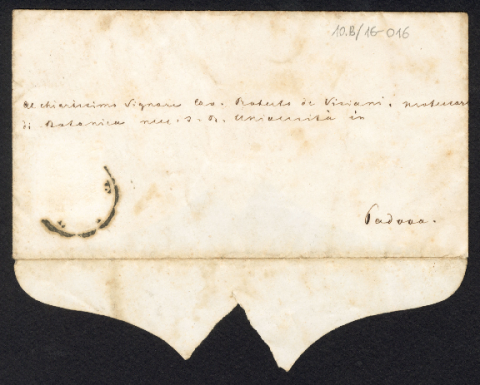 10.B/16-016
Al chiarissimo Signore Cav. Roberto de Visiani, professore
di Botanica nell' I. R. Università in
Padova.